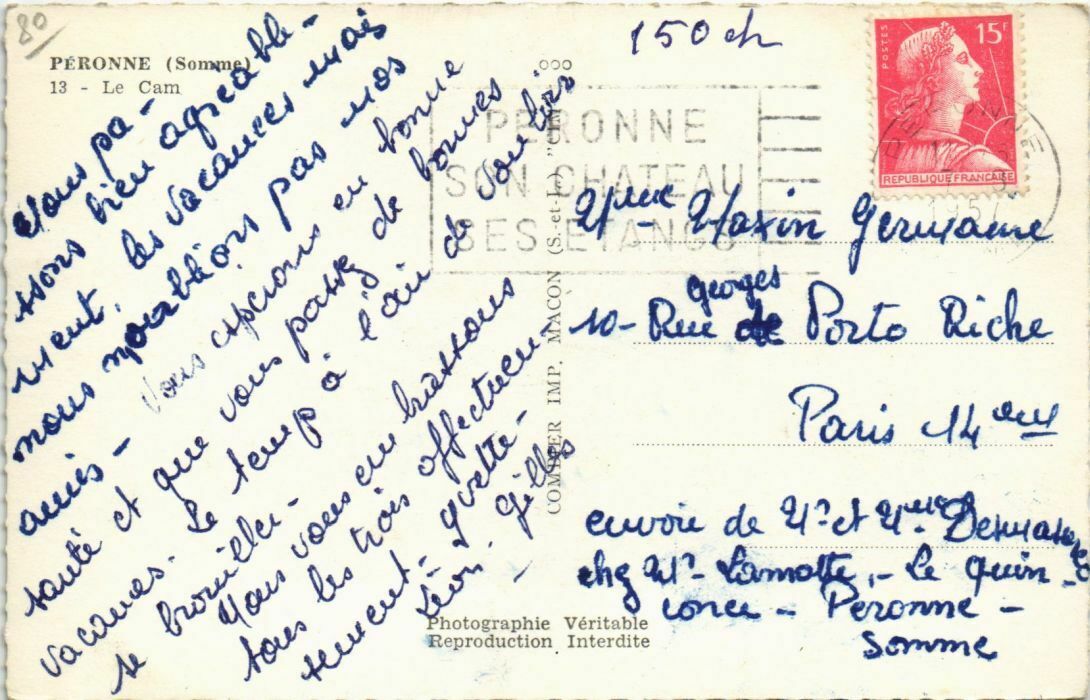 80
PÉRONNE (Somme)
13 - Le Cam
150 ch
Nous pa-
ssons bien agréable-
ment, les vacances mais
nous n'oublions pas nos
amis -
Vous espérons en bonne
santé et que vous passez de bonnes
vacances. Le temp à l'air de vouloir
se brouiller -
Nous vous embrassons
tous les trois affectueu
sement - Yvette -
Léon - Gilles
COMBIER IMP. MACON (S.-et-L.) "
Photographie Véritable
Reproduction Interdite
PERONNE
SON CHATEAU
SES ETANGS
POSTES
15F
REPUBLIQUE FRANCAISE
1957
Germaine
georges
10 - Rue de Porto Riche
Paris 14 eme
envoie de Mr et Mme
chez Mr - Lamotte, - Le Quin-
conce - Peronne -
Somme